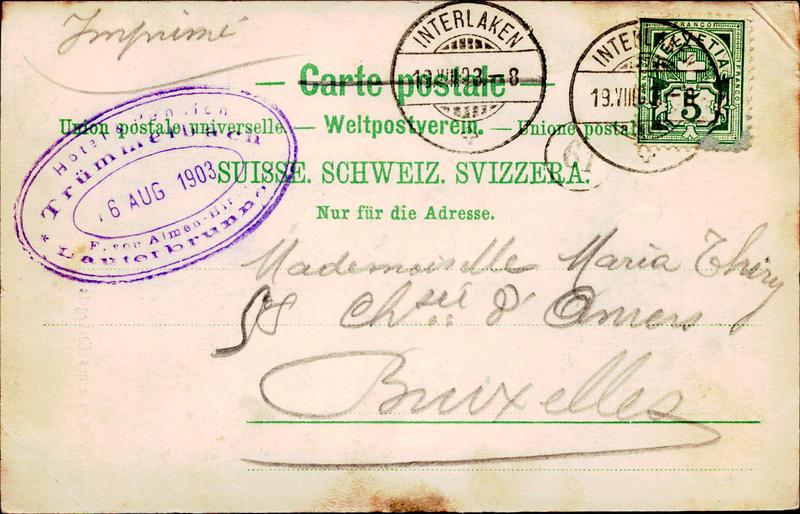 Imprimé
INTERLAKEN
19.VIII.03-8
INTERLAKEN
19.VIII.03-8
FRANCO
HELVETIA
5
Carte postale
Union postale universelle. — Weltpostverein. — Unione postale
SUISSE. SCHWEIZ. SVIZZERA.
Nur für die Adresse.
Hotel & Pension
Trümmelbach
16 AUG 1903
F. von Almen
* Lauterbrunnen *
Mademoiselle Maria Thiry
58 Chsée d'Anvers
Bruxelles